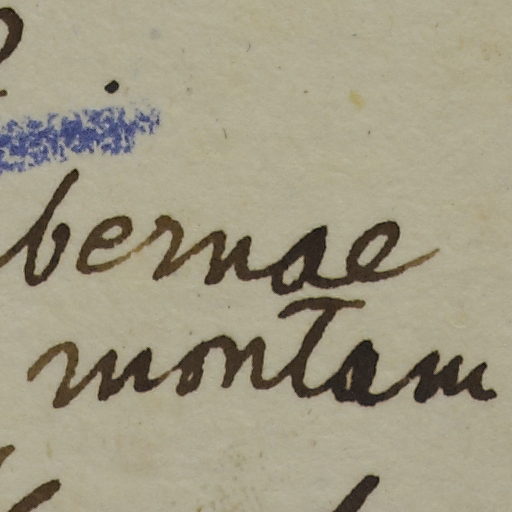 bernae
montam